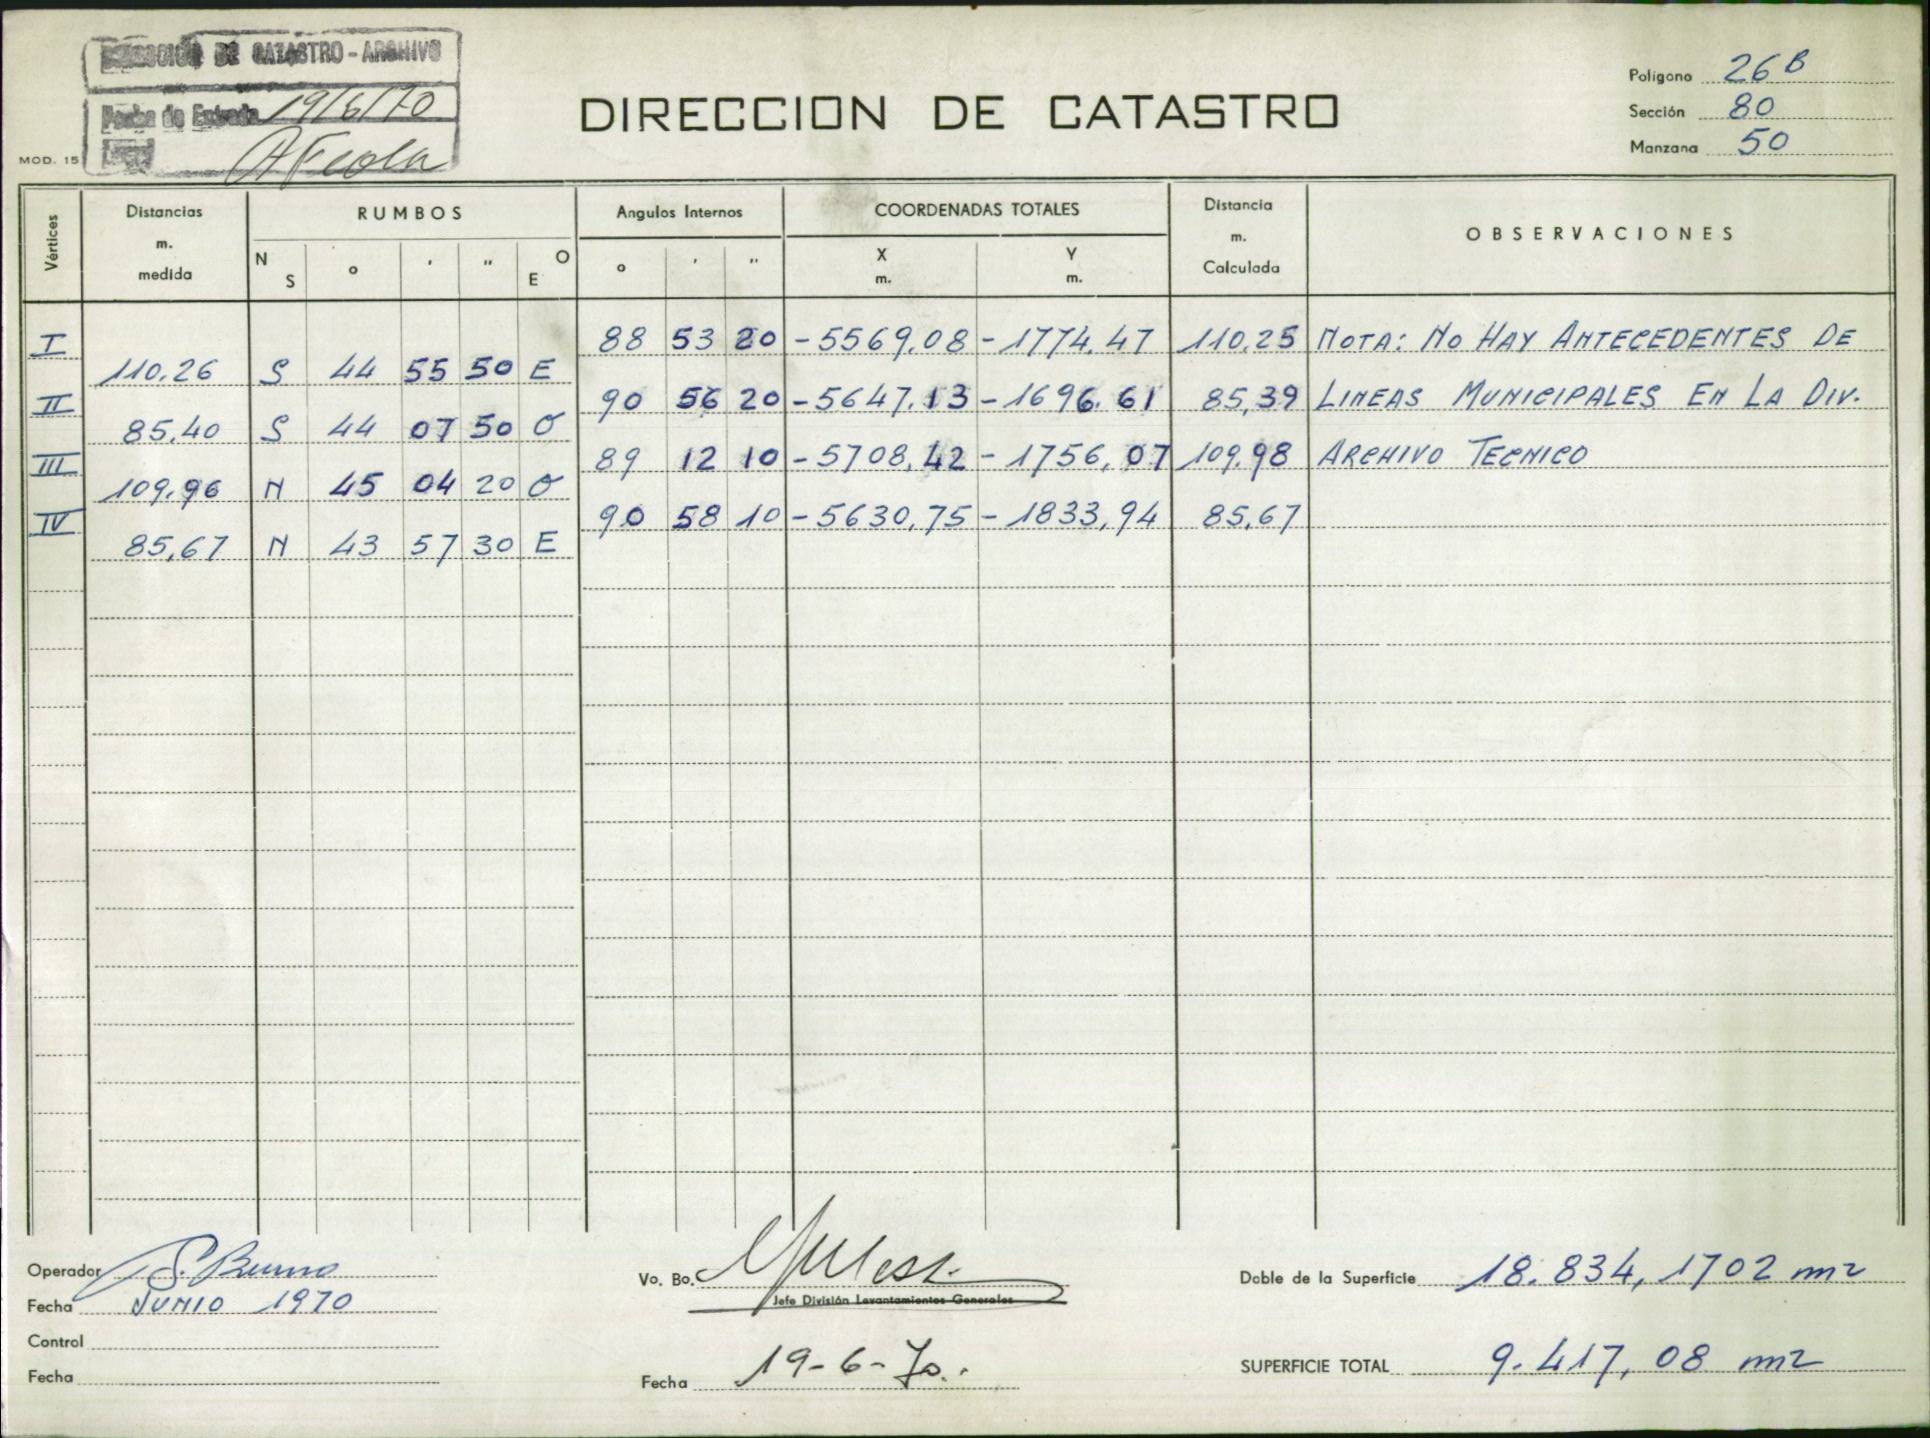 DIRECCIÓN DE CATASTRO - ARCHIVO
Fecha de Entrada 19/6/70
MOD. 15
DIRECCION DE CATASTRO
Polígono 26 B
Sección 80
Manzana 50
Vértices
Distancias m. medida
RUMBOS
N S ° ' " O E
Angulos Internos
° ' "
COORDENADAS TOTALES
X m. Y m.
Distancia m. Calculada
OBSERVACIONES
I 88 53 20 -5569,08 -1774,47 110,25 NOTA: NO HAY ANTECEDENTES DE
110,26 S 44 55 50 E
II 90 56 20 -5647,13 -1696,61 85,39 LINEAS MUNICIPALES EN LA DIV.
85,40 S 44 07 50 O
III 89 12 10 -5708,42 -1756,07 109,98 ARCHIVO TECNICO
109,96 N 45 04 20 O
IV 90 58 10 -5630,75 -1833,94 85,67
85,67 N 43 57 30 E
Operador S. Bruno
Fecha JUNIO 1970
Control
Fecha
Vo. Bo.
Jefe División Levantamientos Generales
Fecha 19-6-70.
Doble de la Superficie 18.834,1702 m2
SUPERFICIE TOTAL 9.417,08 m2